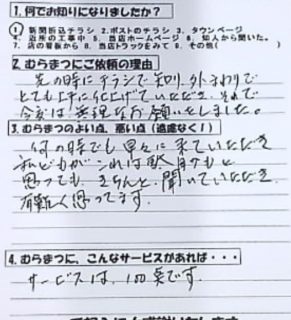 1. 何でお知りになりましたか？
① 新聞折込チラシ 2. ポストのチラシ 3. タウンページ
4. 近所の工事中 5. 当店ホームページ 6. 知人から聞いた。
7. 店の看板から 8. 当店トラックをみて 9. その他(
2. むらまつにご依頼の理由
先の時にチラシで 外まわりで
とても上手に仕上げていただき、それで
今度は無理なお願いをしました。
3. むらまつのよい点、悪い点（遠慮なく！）
何の時でも早々に来ていただき
私どもが これは 思っても、きちんと、聞いていただき
有難く思ってます。
4. むらまつに、こんなサービスがあれば・・・
サービスは、100点です。